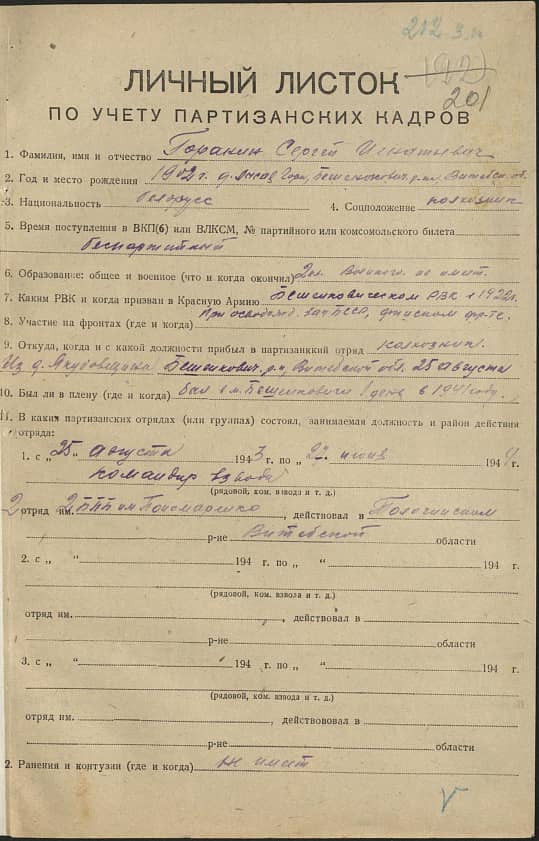 212 3.
(192)
201
ЛИЧНЫЙ ЛИСТОК
ПО УЧЕТУ ПАРТИЗАНСКИХ КАДРОВ
1. Фамилия, имя и отчество Горанин Сергей Игнатьевич
2. Год и место рождения 1902 г. д. Гора, Бешенкович. р-на Витебск. об.
3. Национальность белорусс 4. Соцположение колхозник
5. Время поступления в ВКП(б) или ВЛКСМ, № партийного или комсомольского билета
беспартийный
6. Образование: общее и военное (что и когда окончил) 2 кл. Военного не имеет.
7. Каким РВК и когда призван в Красную Армию Бешенковическом РВК в 1922 г.
8. Участие на фронтах (где и когда) При освобожд. зап БССР, финском фр-те.
9. Откуда, когда и с какой должности прибыл в партизанский отряд колхозник.
Из д. Якубовщина Бешенкович. р-н, Витебской обл. 25 августа
10. Был ли в плену (где и когда) был в м. Бешенковичи 1 день в 1941 году.
11. В каких партизанских отрядах (или группах) состоял, занимаемая должность и район действия
отряда:
1. с „ 25 “ августа 1943 г. по „ 27 “ июня 1944 г.
командир взвода
(рядовой, ком. взвода и т. д.)
2 отряд им. 2 БТП им Пономаренко, действовал в Толочинском
р-не Витебской области
2. с „ “ 194 г. по „ “ 194 г.
(рядовой, ком. взвода и т. д.)
отряд им. , действовал в
р-не области
3. с „ “ 194 г. по „ “ 194 г.
(рядовой, ком. взвода и т. д.)
отряд им. , действововал в
р-не области
2. Ранения и контузии (где и когда) не имеет
V